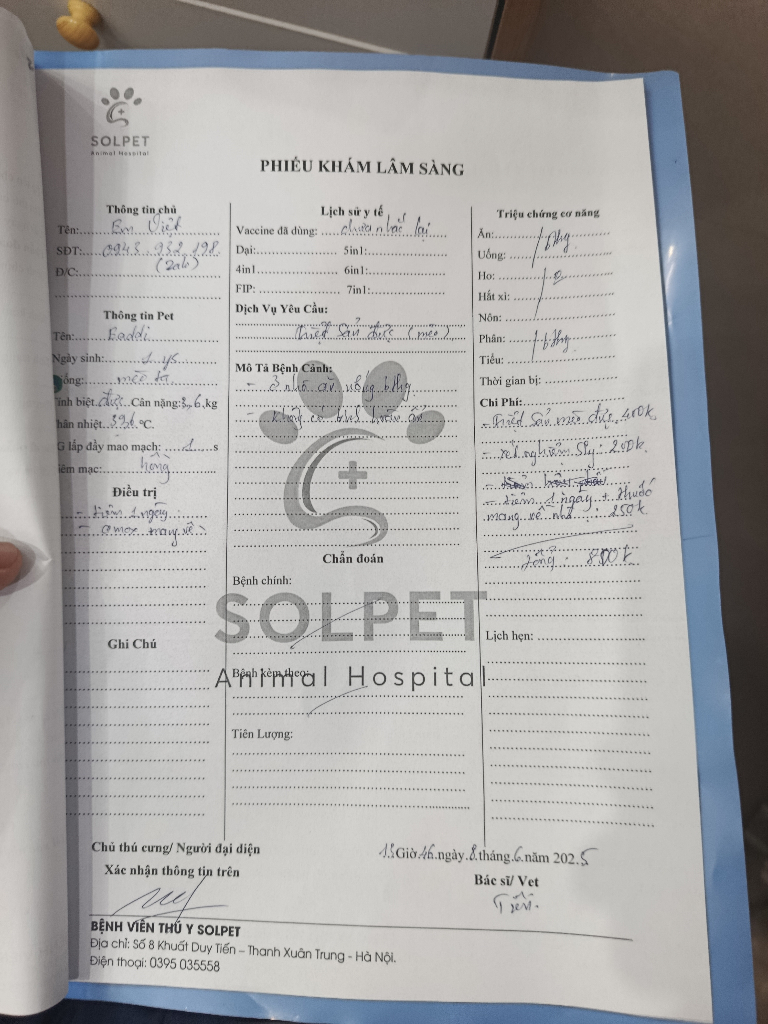 SOLPET
Animal Hospital
PHIẾU KHÁM LÂM SÀNG
Thông tin chủ
Tên: Em Việt
SĐT: 0943.932.198
(Zalo)
Đ/C:
Thông tin Pet
Tên: Baddi
Ngày sinh: 1 ys
iống: mèo ta
ính biệt: đực Cân nặng: 3,6 kg
hân nhiệt: 39,6 °C.
G lấp đầy mao mạch: 1 s
iêm mạc: hồng
Điều trị
- tiêm 1 ngày
- amox mang về
Ghi Chú
Lịch sử y tế
Vaccine đã dùng: chưa nhắc lại
Dại: 5in1:
4in1 6in1:
FIP: 7in1:
Dịch Vụ Yêu Cầu:
Triệt sản đực (mèo)
Mô Tả Bệnh Cảnh:
- ở nhà ăn uống bthg
Chẩn đoán
Bệnh chính:
SOLPET
Animal Hospital
Bệnh kèm theo:
Tiên Lượng:
Triệu chứng cơ năng
Ăn:
bthg
Uống:
Ho:
Hắt xì:
Nôn:
Phân:
bthg
Tiểu:
Thời gian bị:
Chi Phí:
- Triệt sản mèo đực: 400k
- xét nghiệm : 200k
- tiêm 1 ngày + thuốc
mang về nhà : 250k
Tổng : 800k
Lịch hẹn:
Chủ thú cưng/ Người đại diện
Xác nhận thông tin trên
Giờ 46 ngày 8 tháng 6 năm 2025
Bác sĩ/ Vet
BỆNH VIỆN THÚ Y SOLPET
Địa chỉ: Số 8 Khuất Duy Tiến – Thanh Xuân Trung - Hà Nội.
Điện thoại: 0395 035558